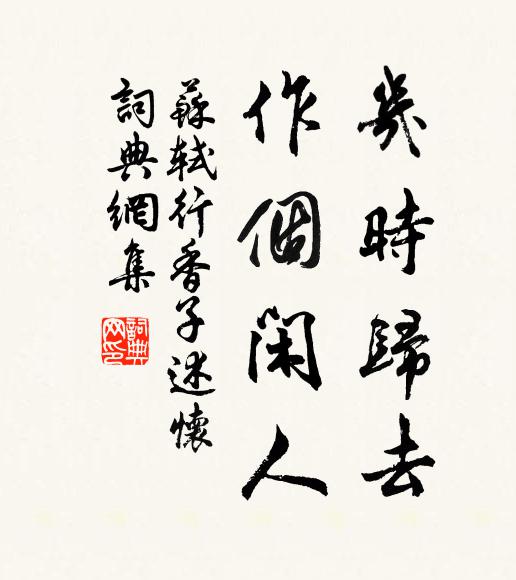 幾時歸去
作個閑人
蘇軾行香子述懷
詞典網集
詞典
网印